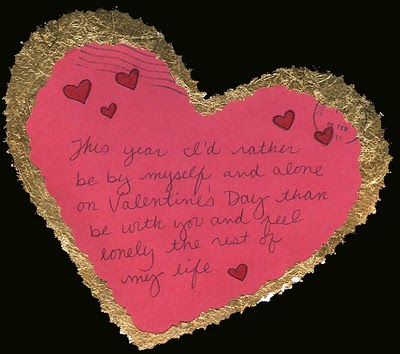 This year I'd rather
be by myself and alone
on Valentine's Day than
be with you and feel
lonely the rest of
my life.